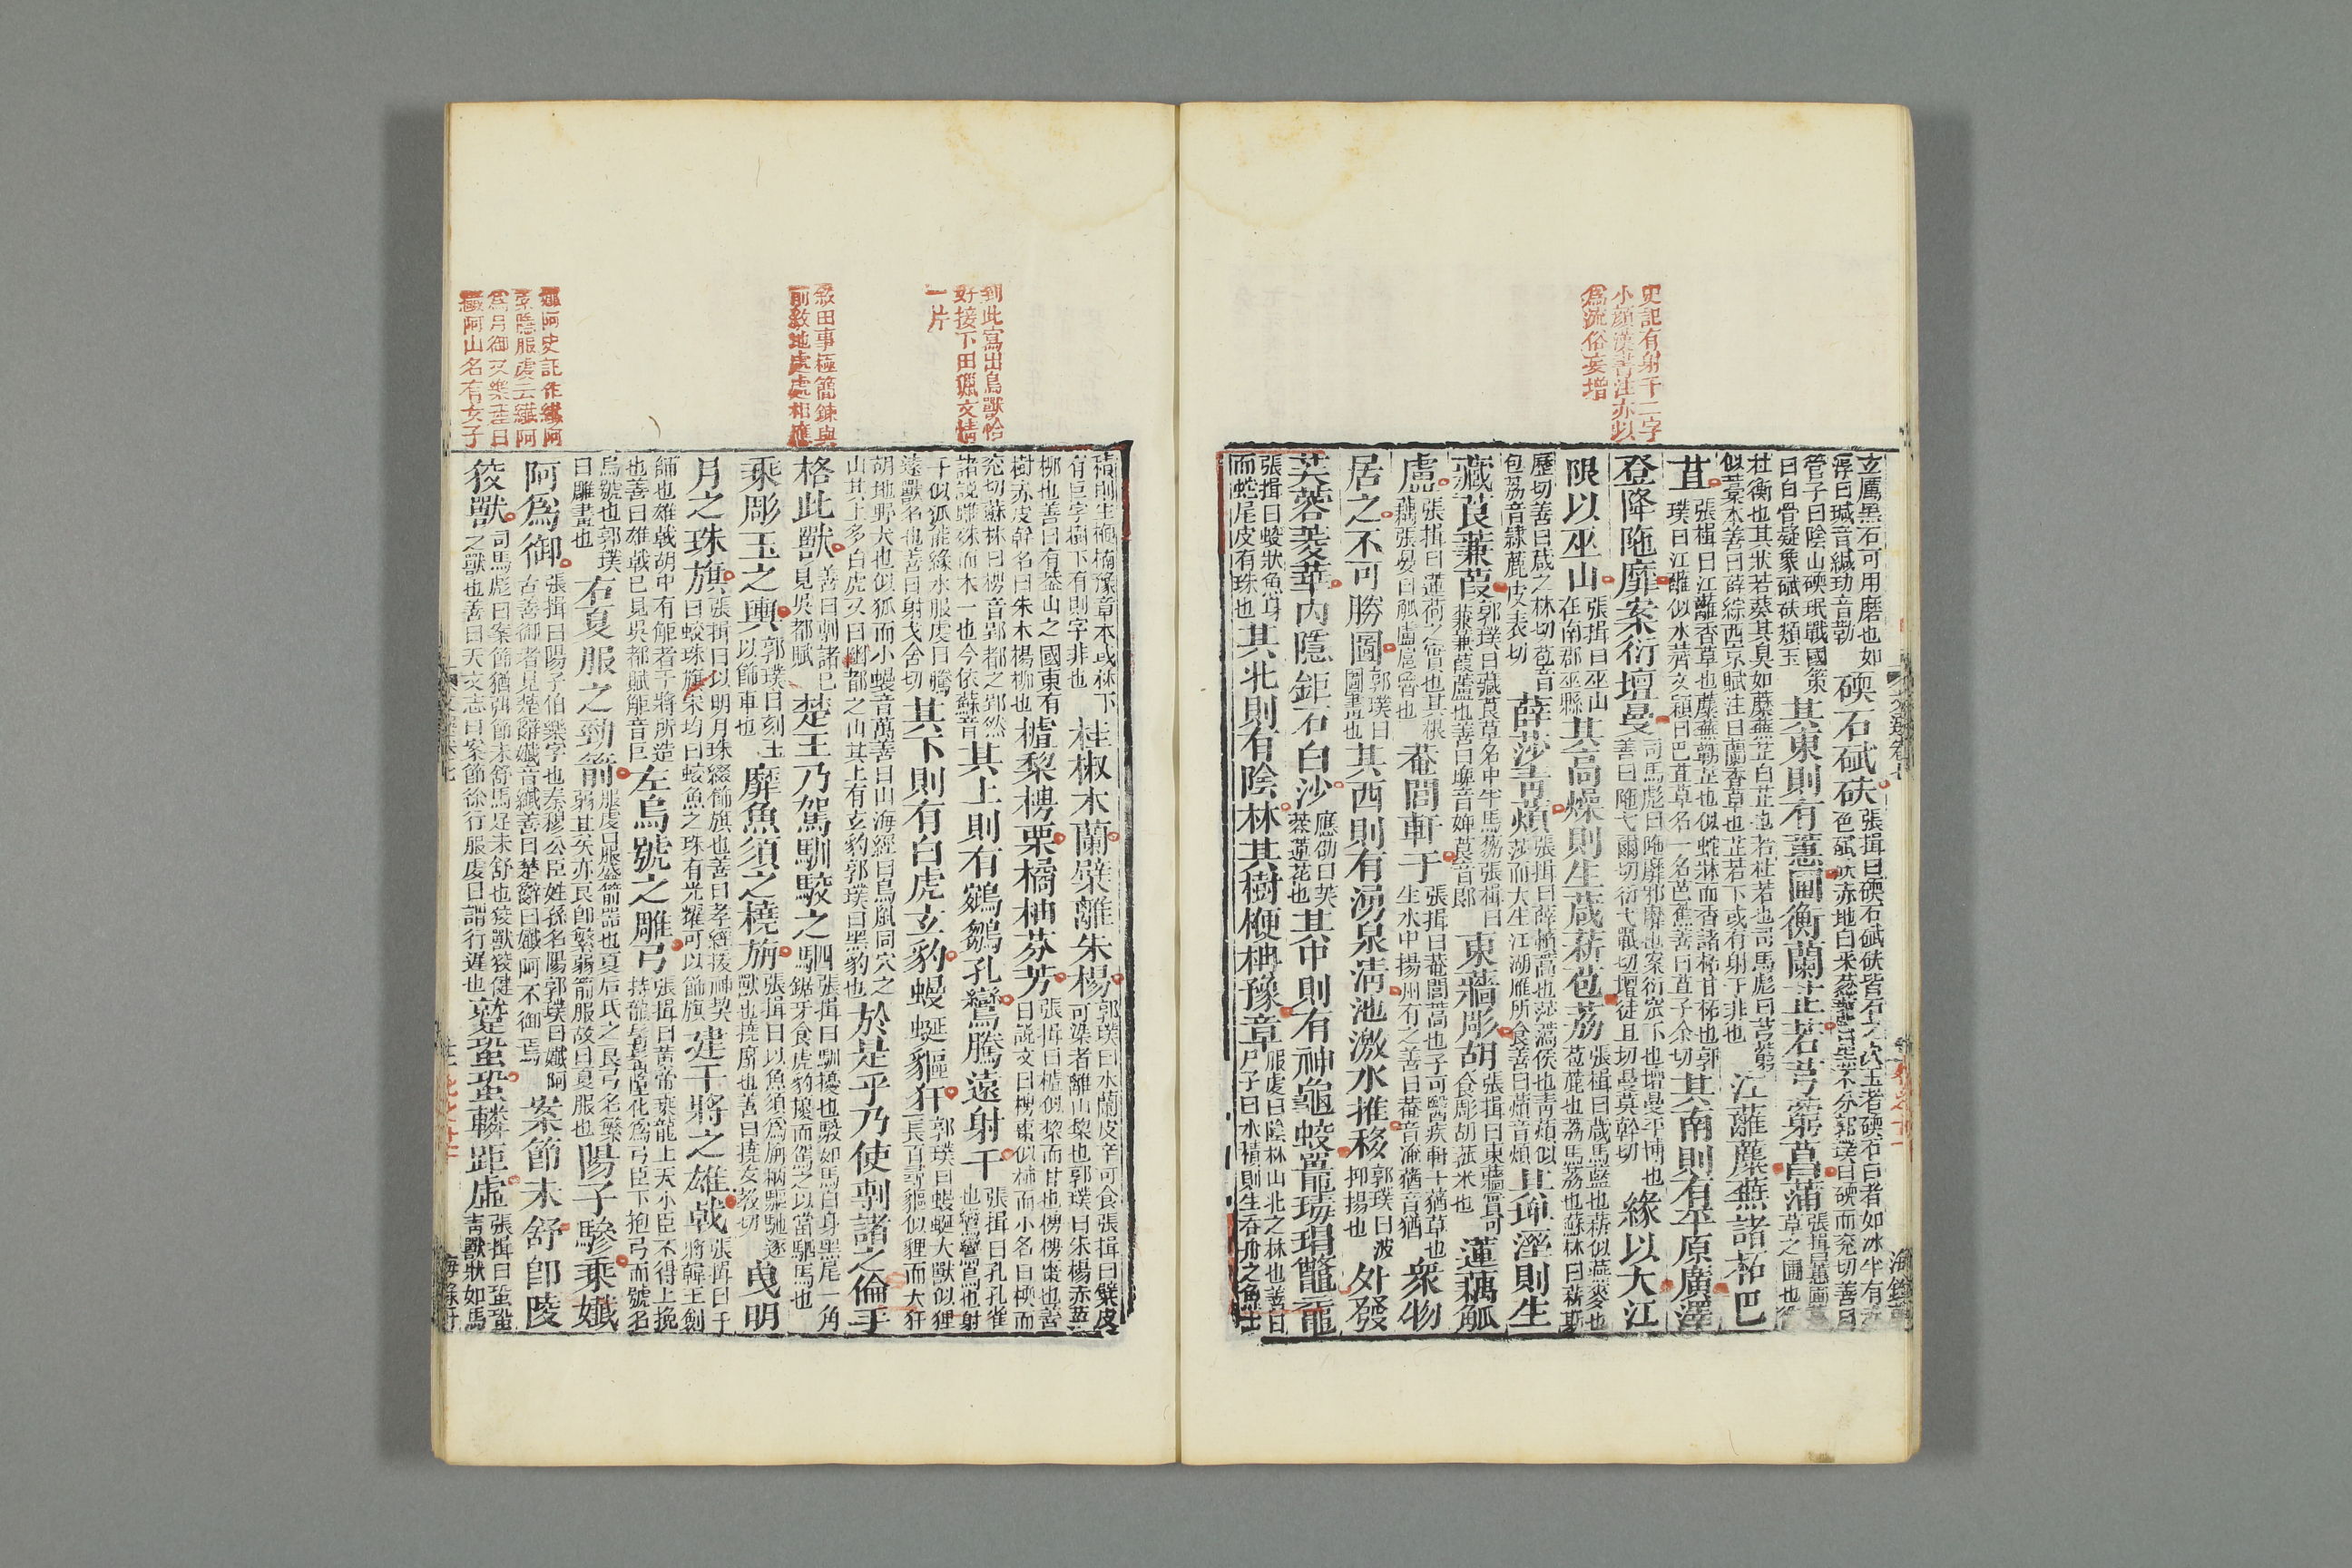 史記有射干二字
小顔漢書注亦以
爲流俗妄增
玄厲黑石可用磨也如淳曰瑊音緘玏音勒碝石碔砆張揖曰碝石碔砆皆石之次玉者碝石白者如冰半有赤色碔砆赤地白采葱蘢白黑不分郭璞曰碝而兖切善曰
管子曰陰山礝珉戰國策曰白骨疑象碔砆類玉其東則有蕙圃衡蘭芷若芎藭菖蒲張揖曰蕙圃蕙草之圃也衡
杜衡也其狀若葵其臭如蘪蕪芷白芷也若杜若也司馬彪曰芎藭似藁本善曰薛綜西京賦注曰蘭香草也芷若下或有射干非也江蘺蘪蕪諸柘巴
苴張楫曰江蘺香草也蘪蕪蘄芷也似蛇牀而香諸柘甘柘也郭璞曰江蘺似水薺文穎曰巴苴草名一名芭蕉善曰苴子余切其南則有平原廣澤
登降陁靡案衍壇曼司馬彪曰陁靡邪靡也案衍窊下也壇曼平博也善曰陁弋爾切衍弋戰切壇徒旦切曼莫幹切緣以大江
限以巫山張揖曰巫山在南郡巫縣其高燥則生葴菥苞荔張楫曰葴馬藍也菥似燕麥也苞藨也荔馬荔也蘇林曰菥斯
歷切善曰葴之林切苞音包荔音隷藨皮表切薛莎青薠張揖曰薛藾蒿也莎鎬侯也青薠似莎而大生江湖雁所食善曰薠音煩其埤溼則生
藏莨蒹葭郭璞曰藏莨草名中牛馬芻張楫曰蒹薕葭蘆也善曰薕音嫌莨音郎東蘠彫胡張揖曰東蘠實可食彫胡菰米也蓮藕觚
盧張揖曰蓮荷之實也其根藕張晏曰觚盧扈魯也菴閭軒于張揖曰菴閭蒿也子可醫疾軒于蕕草也生水中揚州有之善曰菴音淹蕕音猶衆物
居之不可勝圖郭璞曰圖畫也其西則有湧泉淸池激水推移郭璞曰波抑揚也外發
芙蓉菱華内隱鉅石白沙應劭曰芙蓉蓮花也其中則有神龜蛟鼉瑇瑁鼈黿
張揖曰蛟狀魚身而蛇尾皮有珠也其北則有陰林其樹楩柟豫章服虔曰陰林山北之林也善曰尸子曰水積則生吞舟之魚土
到此寫出鳥獸恰
好接下田獵文情
一片
敘田事極簡鍊與
前敘地處處相應
孅阿史記作纖阿
索隱服虔云纖阿
爲月御又樂產曰
纖阿山名有女子
積則生楩柟豫章本或林下有巨字樹下有則字非也桂椒木蘭檗離朱楊郭璞曰木蘭皮辛可食張揖曰檗皮可染者離山梨也郭璞曰朱楊赤莖
柳也善曰有蓋山之國東有樹赤皮幹名曰朱木楊柳也樝棃梬栗橘柚芬芳張揖曰樝似棃而甘也梬梬棗也善曰說文曰梬棗似柿而小名曰㮕而
兖切蘇林曰梬音郢都之郢然諸說雖殊而木一也今依蘇音其上則有鵷鶵孔鸞騰遠射干張揖曰孔孔雀也鸞鸞鳥也射
干似狐能緣木服虔曰騰遠獸名也善曰射弋舍切其下則有白虎玄豹蟃蜒貙犴郭璞曰蟃蜒大獸似狸長百尋貙似狸而大犴
胡地野犬也似狐而小蟃音萬善曰山海經曰鳥鼠同穴之山其上多白虎又曰幽都之山其上有玄豹郭璞曰黑豹也於是乎乃使剸諸之倫手
格此獸善曰剸諸已見吳都賦楚王乃駕馴駮之駟張揖曰馴擾也駮如馬白身黑尾一角鋸牙食虎豹擾而駕之以當駟馬也
乘彫玉之輿郭璞曰刻玉以飾車也靡魚須之橈旃張揖曰以魚須爲旃柄驅馳逐獸也橈靡也善曰橈友敎切曳明
月之珠旗張揖曰以明月珠綴飾旗也善曰孝經援神契曰蛟珠旗宋均曰蛟魚之珠有光耀可以飾旗建干將之雄戟張揖曰干將韓王劍
師也雄戟胡中有鮔者干將所造也善曰雄戟已見吳都賦鮔音巨左烏號之雕弓張揖曰黃帝乘龍上天小臣不得上挽持龍髯髯拔墮化爲弓臣下抱弓而號名
烏號也郭璞曰雕畫也右夏服之勁箭服虔曰服盛箭器也夏后氏之良弓名繁弱其矢亦良卽繁弱箭服故曰夏服也陽子驂乘孅
阿爲御張揖曰陽子伯樂字也秦穆公臣姓孫名陽郭璞曰孅阿古善御者見楚辭孅音纖善曰楚辭曰孅阿不御焉案節未舒卽陵
狡獸司馬彪曰案節猶弭節未舒馬足未舒也狡獸狡健之獸也善曰天文志曰案節徐行服虔曰謂行遲也蹵蛩蛩轔距虛張揖曰蛩蛩青獸狀如馬